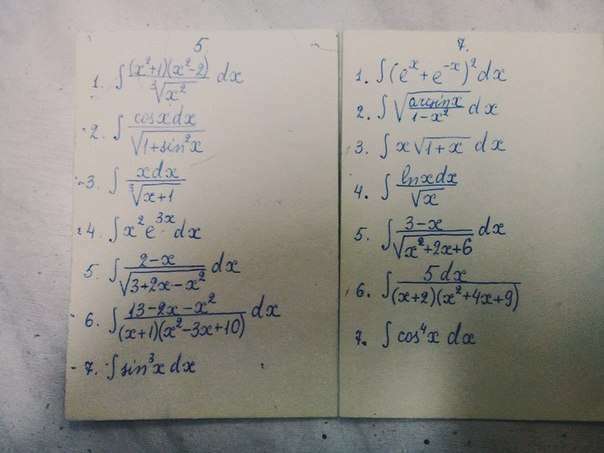 5
1. ∫ (x²+1)(x²-2)/∛x² dx
2. ∫ cosx dx/√(1+sin²x)
3. ∫ x dx/∛(x+1)
4. ∫ x² e^3x dx
5. ∫ (2-x)/√(3+2x-x²) dx
6. ∫ (13-2x-x²)/((x+1)(x²-3x+10)) dx
7. ∫ sin³x dx
7.
1. ∫ (e^x + e^-x)² dx
2. ∫ √(arcsin x/(1-x²)) dx
3. ∫ x √(1+x) dx
4. ∫ lnx dx/√x
5. ∫ (3-x)/√(x²+2x+6) dx
6. ∫ 5 dx/((x+2)(x²+4x+9))
7. ∫ cos⁴x dx